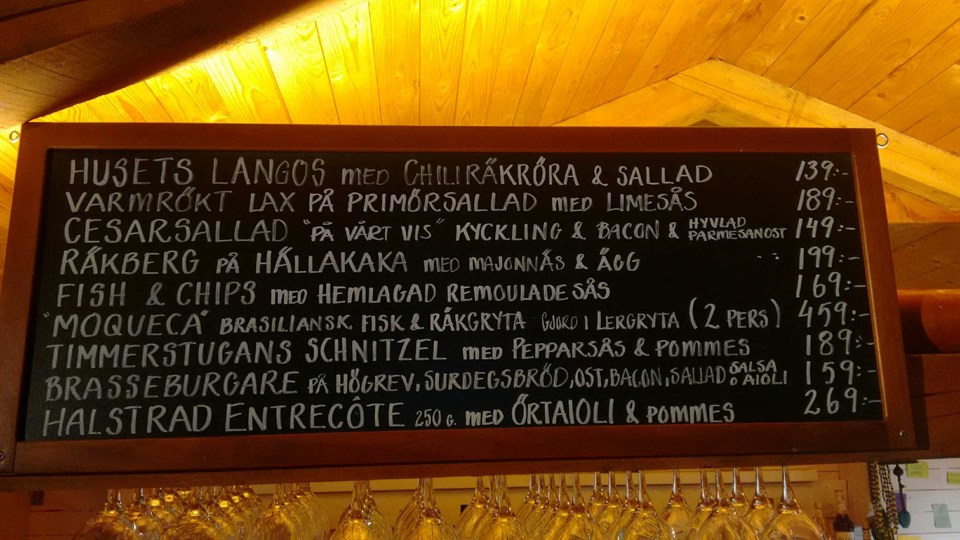 HUSETS LANGOS MED CHILIRÄKRÖRA & SALLAD 139:-
VARMRÖKT LAX PÅ PRIMÖRSALLAD MED LIMESÅS 189:-
CESARSALLAD "PÅ VÅRT VIS" KYCKLING & BACON & HYVLAD PARMESANOST 149:-
RÄKBERG PÅ HÄLLAKAKA MED MAJONNÄS & ÄGG 199:-
FISH & CHIPS MED HEMLAGAD REMOULADESÅS 169:-
"MOQUECA" BRASILIANSK FISK & RÄKGRYTA GJORD I LERGRYTA (2 PERS) 459:-
TIMMERSTUGANS SCHNITZEL MED PEPPARSÅS & POMMES 189:-
BRASSEBURGARE PÅ HÖGREV, SURDEGSBRÖD, OST, BACON, SALLAD SALSA O AIOLI 159:-
HALSTRAD ENTRECÔTE 250 G. MED ÖRTAIOLI & POMMES 269:-